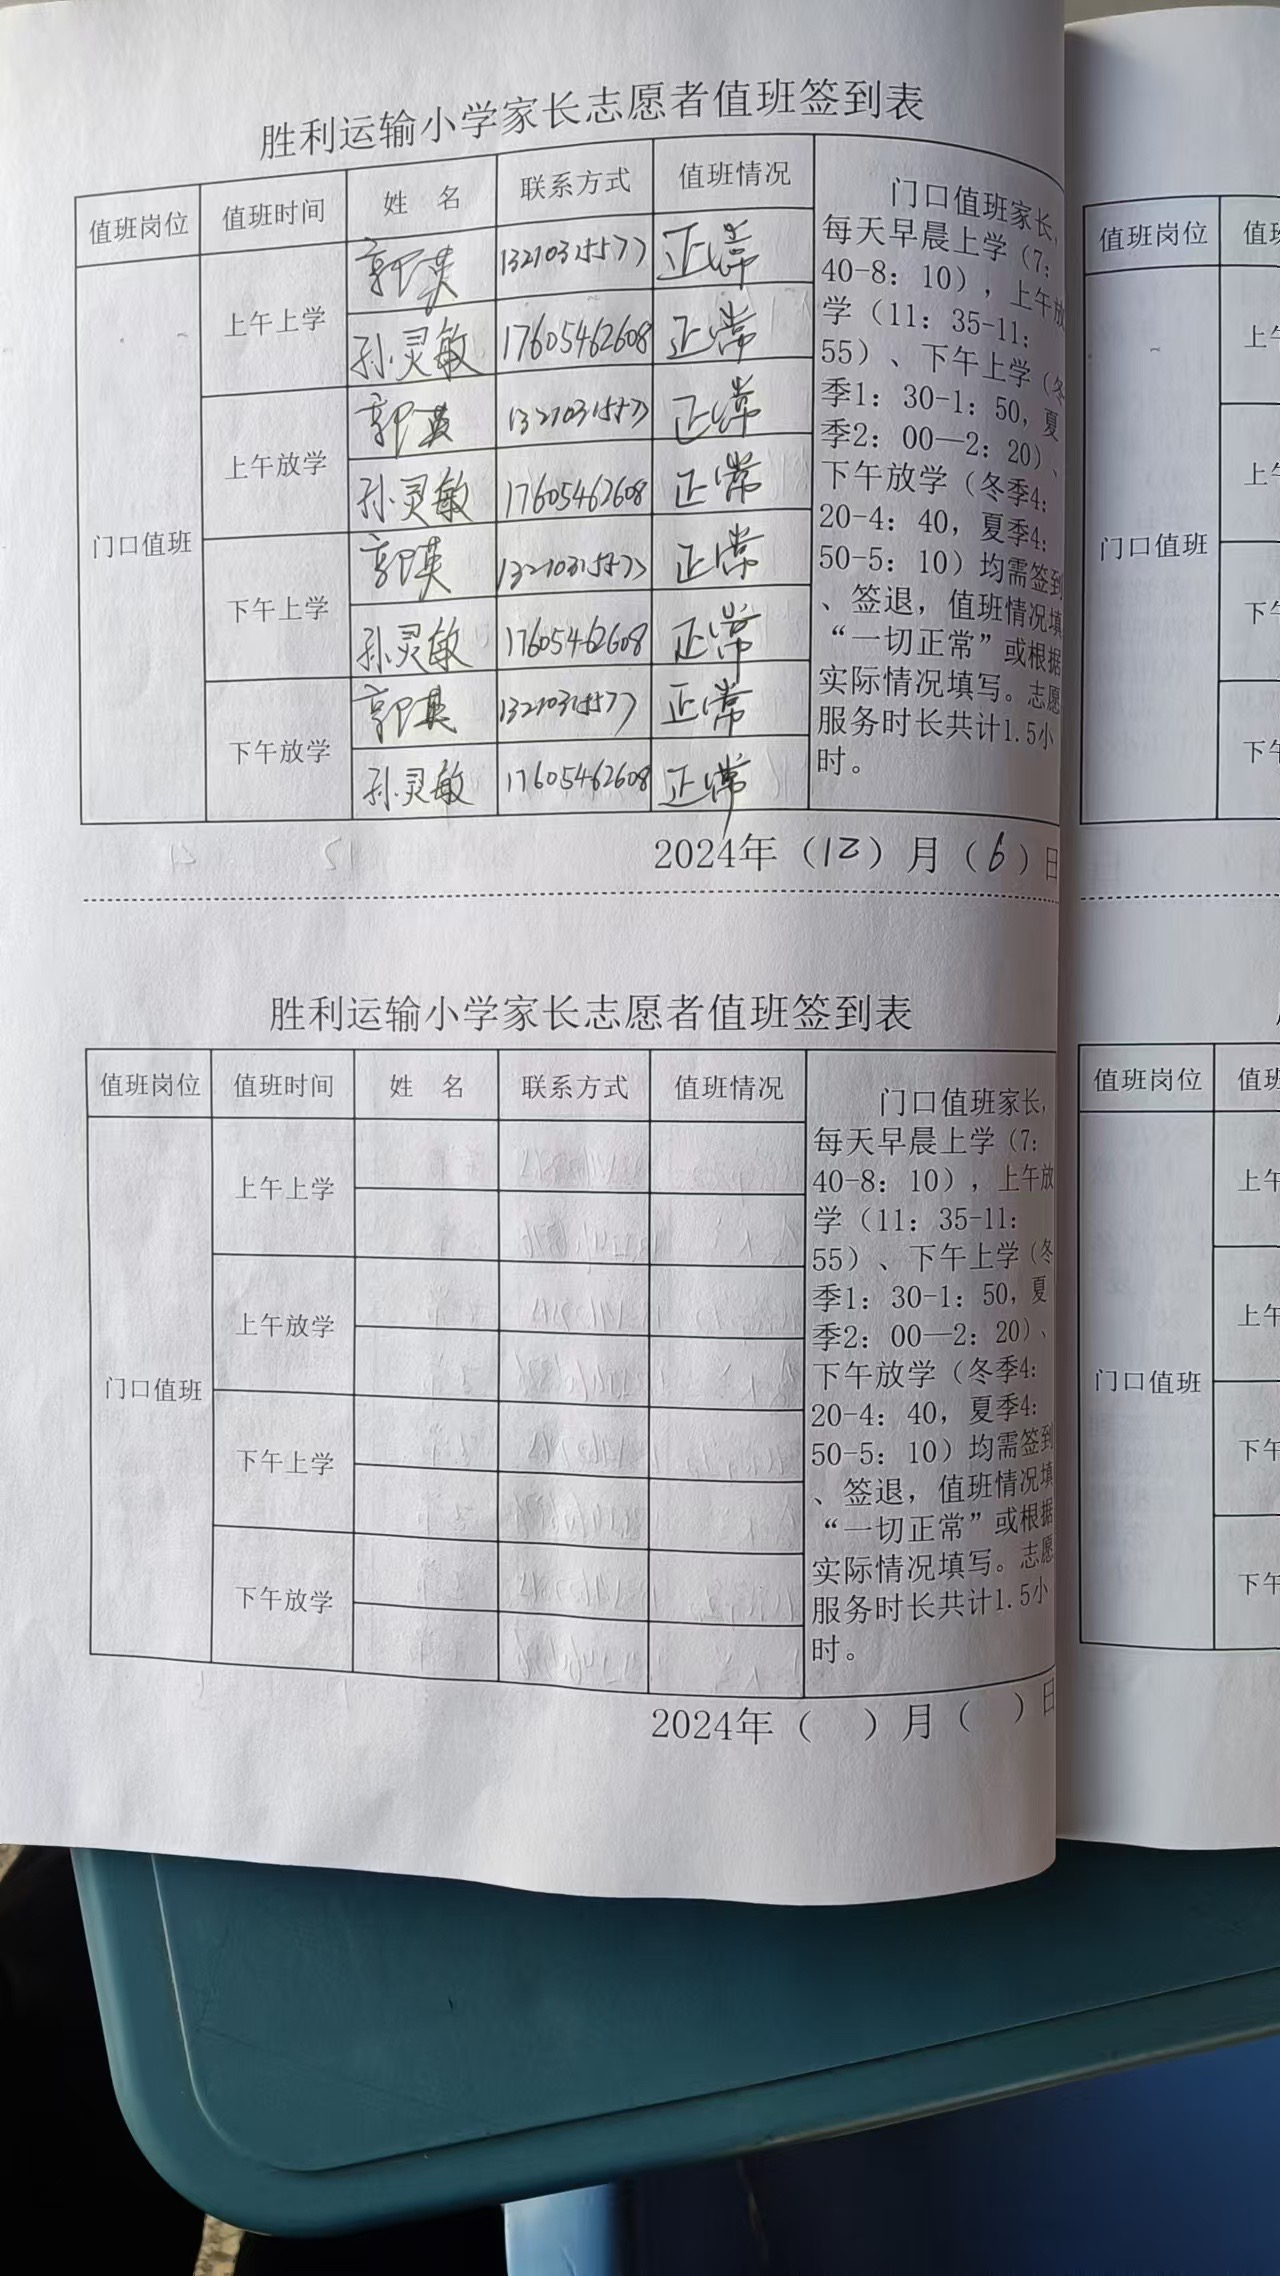 胜利运输小学家长志愿者值班签到表
值班岗位 值班时间 姓 名 联系方式 值班情况
门口值班
上午上学
郭英 13210315577 正常
孙灵敏 17605462608 正常
上午放学
郭英 13210315577 正常
孙灵敏 17605462608 正常
下午上学
郭英 13210315577 正常
孙灵敏 17605462608 正常
下午放学
郭英 13210315577 正常
孙灵敏 17605462608 正常
门口值班家长,
每天早晨上学（7:
40-8: 10），上午放
学（11: 35-11:
55）、下午上学（冬
季1: 30-1: 50, 夏
季2: 00—2: 20）、
下午放学（冬季4:
20-4: 40, 夏季4:
50-5: 10）均需签到
、签退，值班情况填
“一切正常”或根据
实际情况填写。志愿
服务时长共计1.5小
时。
2024年（12）月（6）日
胜利运输小学家长志愿者值班签到表
值班岗位 值班时间 姓 名 联系方式 值班情况
门口值班
上午上学
上午放学
下午上学
下午放学
门口值班家长,
每天早晨上学（7:
40-8: 10），上午放
学（11: 35-11:
55）、下午上学（冬
季1: 30-1: 50, 夏
季2: 00—2: 20）、
下午放学（冬季4:
20-4: 40, 夏季4:
50-5: 10）均需签到
、签退，值班情况填
“一切正常”或根据
实际情况填写。志愿
服务时长共计1.5小
时。
2024年（ ）月（ ）日
值班岗位 值班
门口值班
上午
上午
下午
下午
值班岗位 值班
门口值班
上午
上午
下午
下午